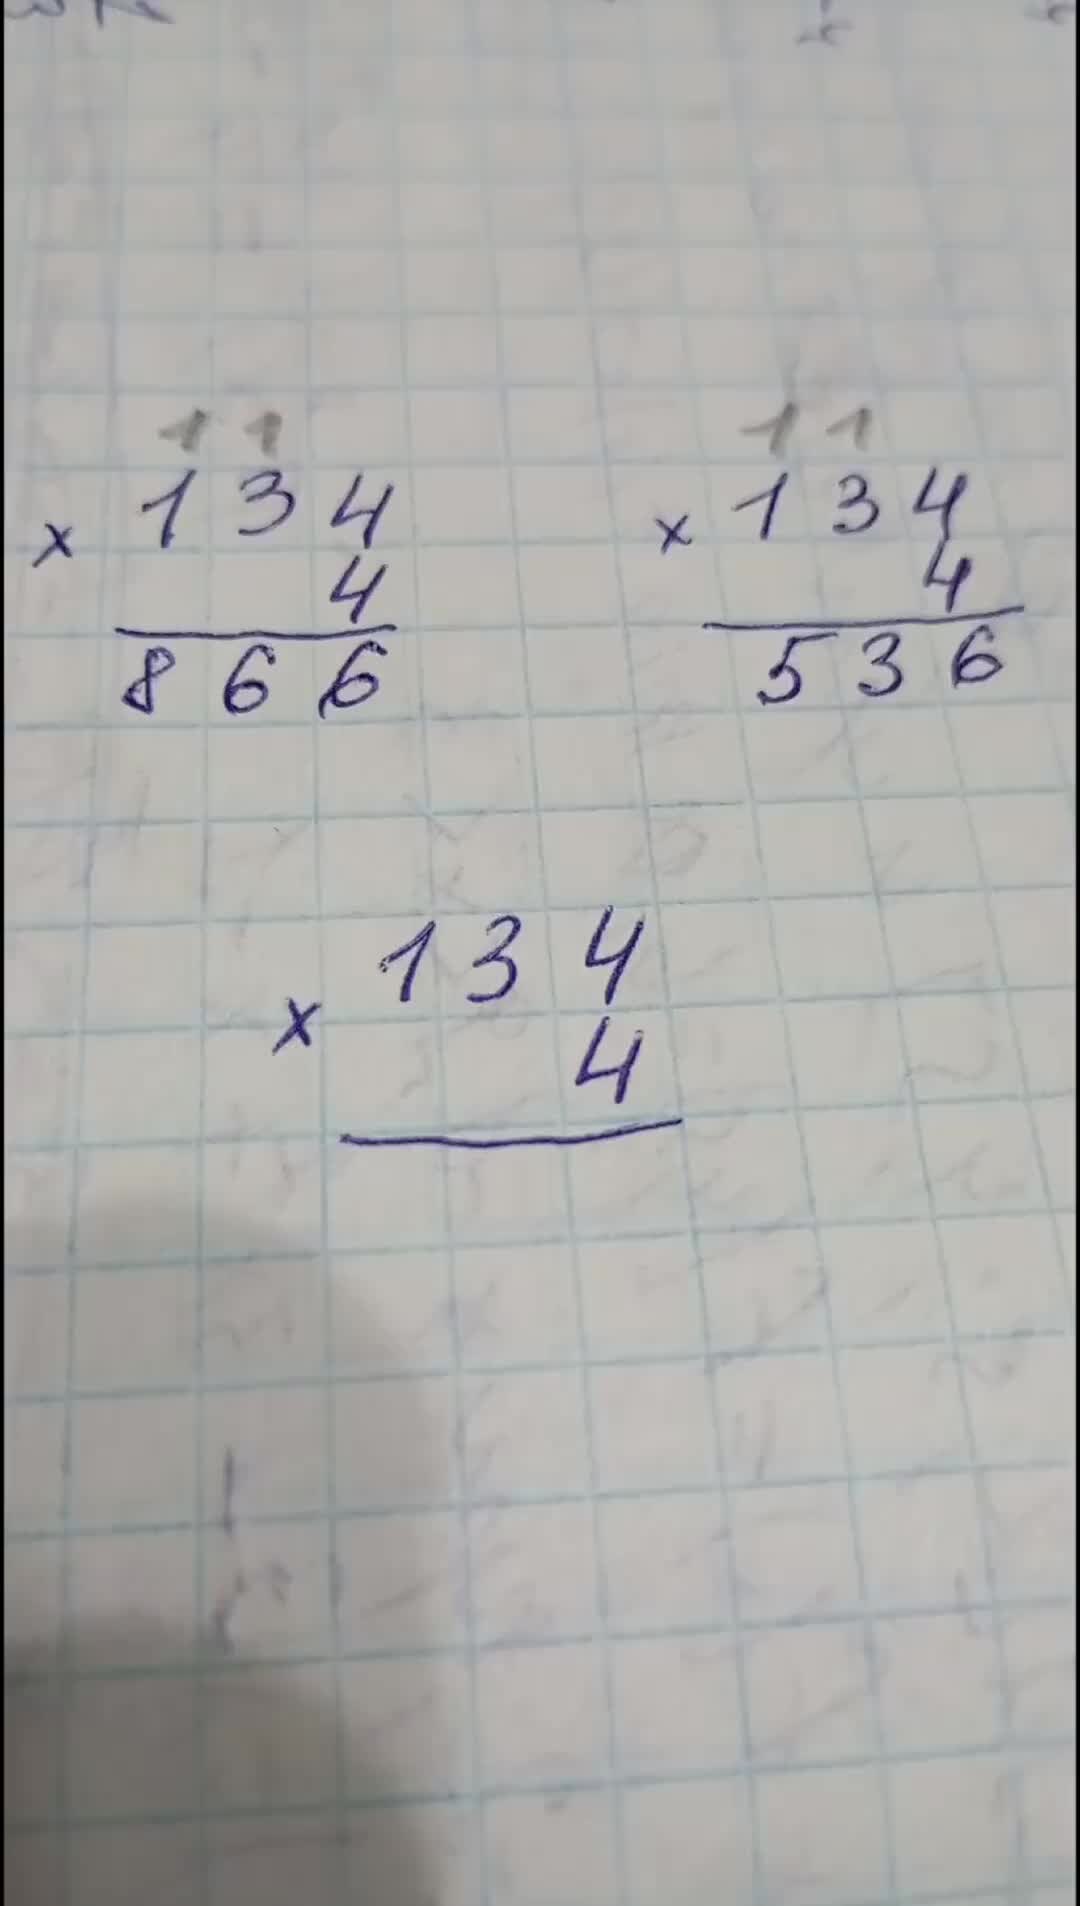 1 1
× 134
4
866
1 1
× 134
4
536
× 134
4